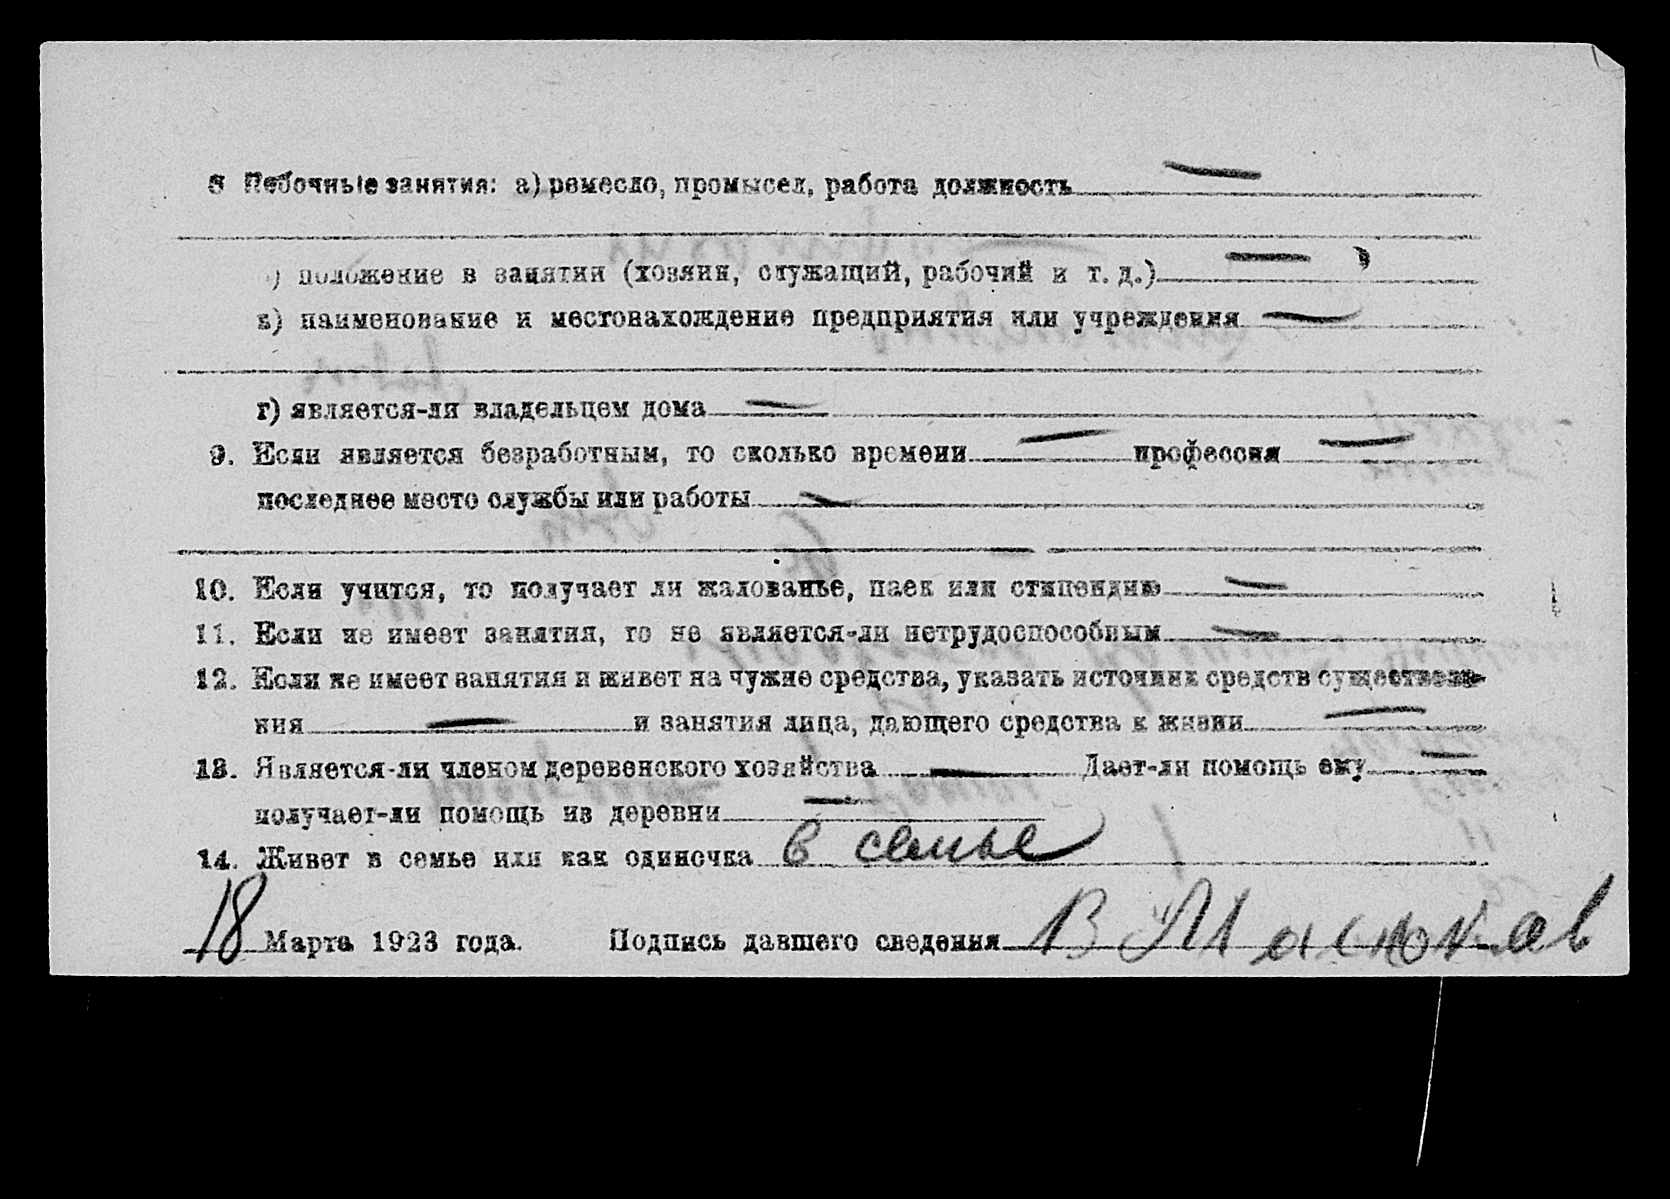 8 Побочные занятия: а) ремесло, промысел, работа должность —
) положение в занятии (хозяин, служащий, рабочий и т. д.) —
в) наименование и местонахождение предприятия или учреждения —
г) является-ли владельцем дома —
9. Если является безработным, то сколько времени — профессия —
последнее место службы или работы —
10. Если учится, то получает ли жалованье, паек или стипендию —
11. Если не имеет занятия, то не является-ли нетрудоспособным —
12. Если не имеет занятия и живет на чужие средства, указать источник средств существова-
ния — и занятия лица, дающего средства к жизни —
13. Является-ли членом деревенского хозяйства — Дает-ли помощь ему —
получает-ли помощь из деревни —
14. Живет в семье или как одиночка в семье
18 Марта 1923 года. Подпись давшего сведения В